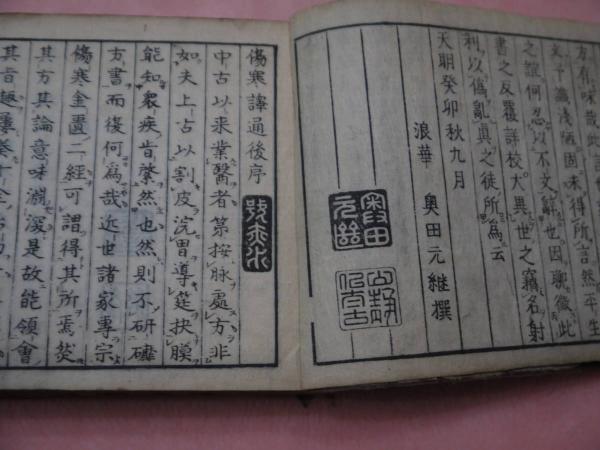 方有味哉此
文字識淺陋固未得所言然平生
之誼何忍以不文辭也因聊徵此
書之反覆詳校大異世之竊名射
利以偽亂真之徒所為云
天明癸卯秋九月
浪華 奧田元継撰
奧田
元継
傷寒譯通後序
中古以来業醫者第按脉處方非
如夫上古以割皮浣胃導筳抉膜
能知衆疾肯綮然也然則不研磨
方書而復何為哉近世諸家專宗
傷寒金匱二經可謂得其所焉矣
其方其論意味淵深是故能領會
其旨趣